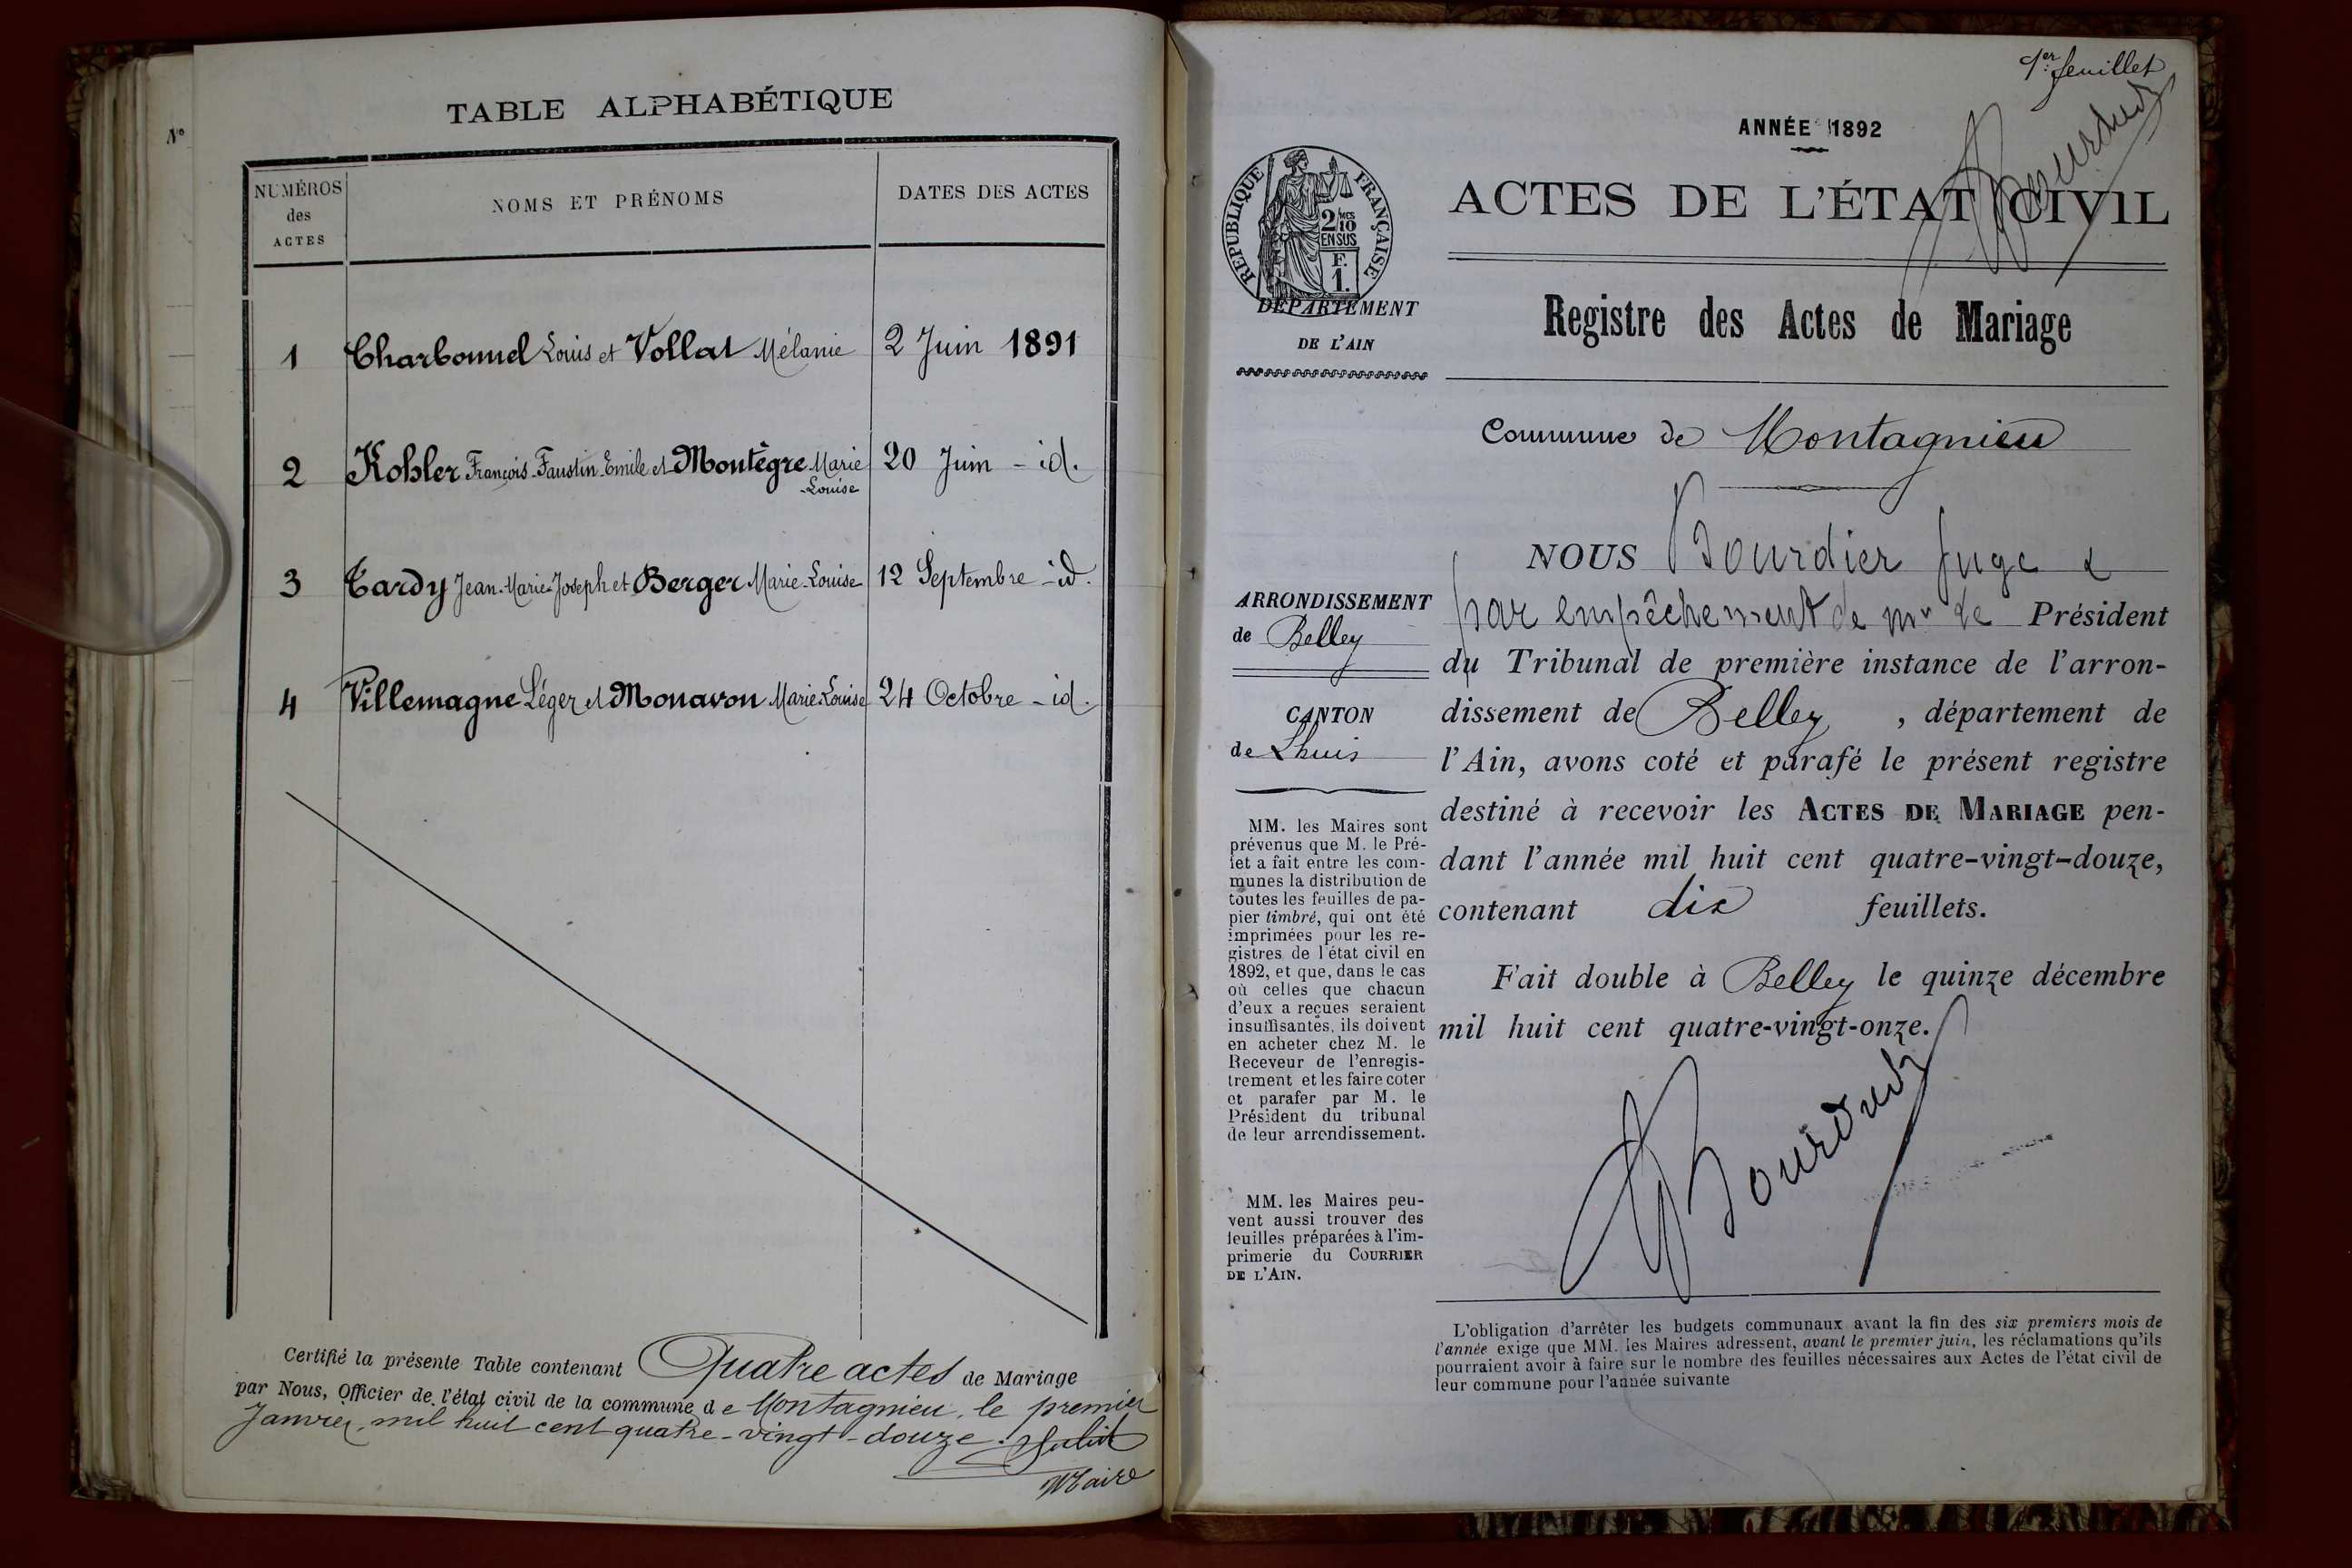 N°
TABLE ALPHABÉTIQUE
NUMÉROS
des
ACTES
NOMS ET PRÉNOMS
DATES DES ACTES
1 Charbonnel Louis et Vollat Mélanie 2 Juin 1891
2 Kohler François-Faustin-Emile et Montègre Marie 20 Juin - id.
-Louise
3 Tardy Jean-Marie-Joseph et Berger Marie-Louise 12 Septembre - id.
4 Villemagne Léger et Monavon Marie-Louise 24 Octobre - id.
Certifié la présente Table contenant Quatre actes de Mariage
par Nous, Officier de l'état civil de la commune de Montagnieu, le premier
Janvier, mil huit cent quatre-vingt-douze.
Maire
1er feuillet
ANNÉE 1892
ACTES DE L'ÉTAT CIVIL
RÉPUBLIQUE FRANÇAISE
2/10
EN SUS
F.
1.
DÉPARTEMENT
DE L'AIN
Registre des Actes de Mariage
Commune de Montagnieu
ARRONDISSEMENT
de Belley
CANTON
de Lhuis
MM. les Maires sont
prévenus que M. le Pré-
fet a fait entre les com-
munes la distribution de
toutes les feuilles de pa-
pier timbré, qui ont été
imprimées pour les re-
gistres de l'état civil en
1892, et que, dans le cas
où celles que chacun
d'eux a reçues seraient
insuffisantes, ils doivent
en acheter chez M. le
Receveur de l'enregis-
trement et les faire coter
et parafer par M. le
Président du tribunal
de leur arrondissement.
MM. les Maires peu-
vent aussi trouver des
feuilles préparées à l'im-
primerie du COURRIER
DE L'AIN.
NOUS Bourdier Juge &
par empêchement de Mr le Président
du Tribunal de première instance de l'arron-
dissement de Belley, département de
l'Ain, avons coté et parafé le présent registre
destiné à recevoir les ACTES DE MARIAGE pen-
dant l'année mil huit cent quatre-vingt-douze,
contenant dix feuillets.
Fait double à Belley le quinze décembre
mil huit cent quatre-vingt-onze.
Bourdier
L'obligation d'arrêter les budgets communaux avant la fin des six premiers mois de
l'année exige que MM. les Maires adressent, avant le premier juin, les réclamations qu'ils
pourraient avoir à faire sur le nombre des feuilles nécessaires aux Actes de l'état civil de
leur commune pour l'année suivante